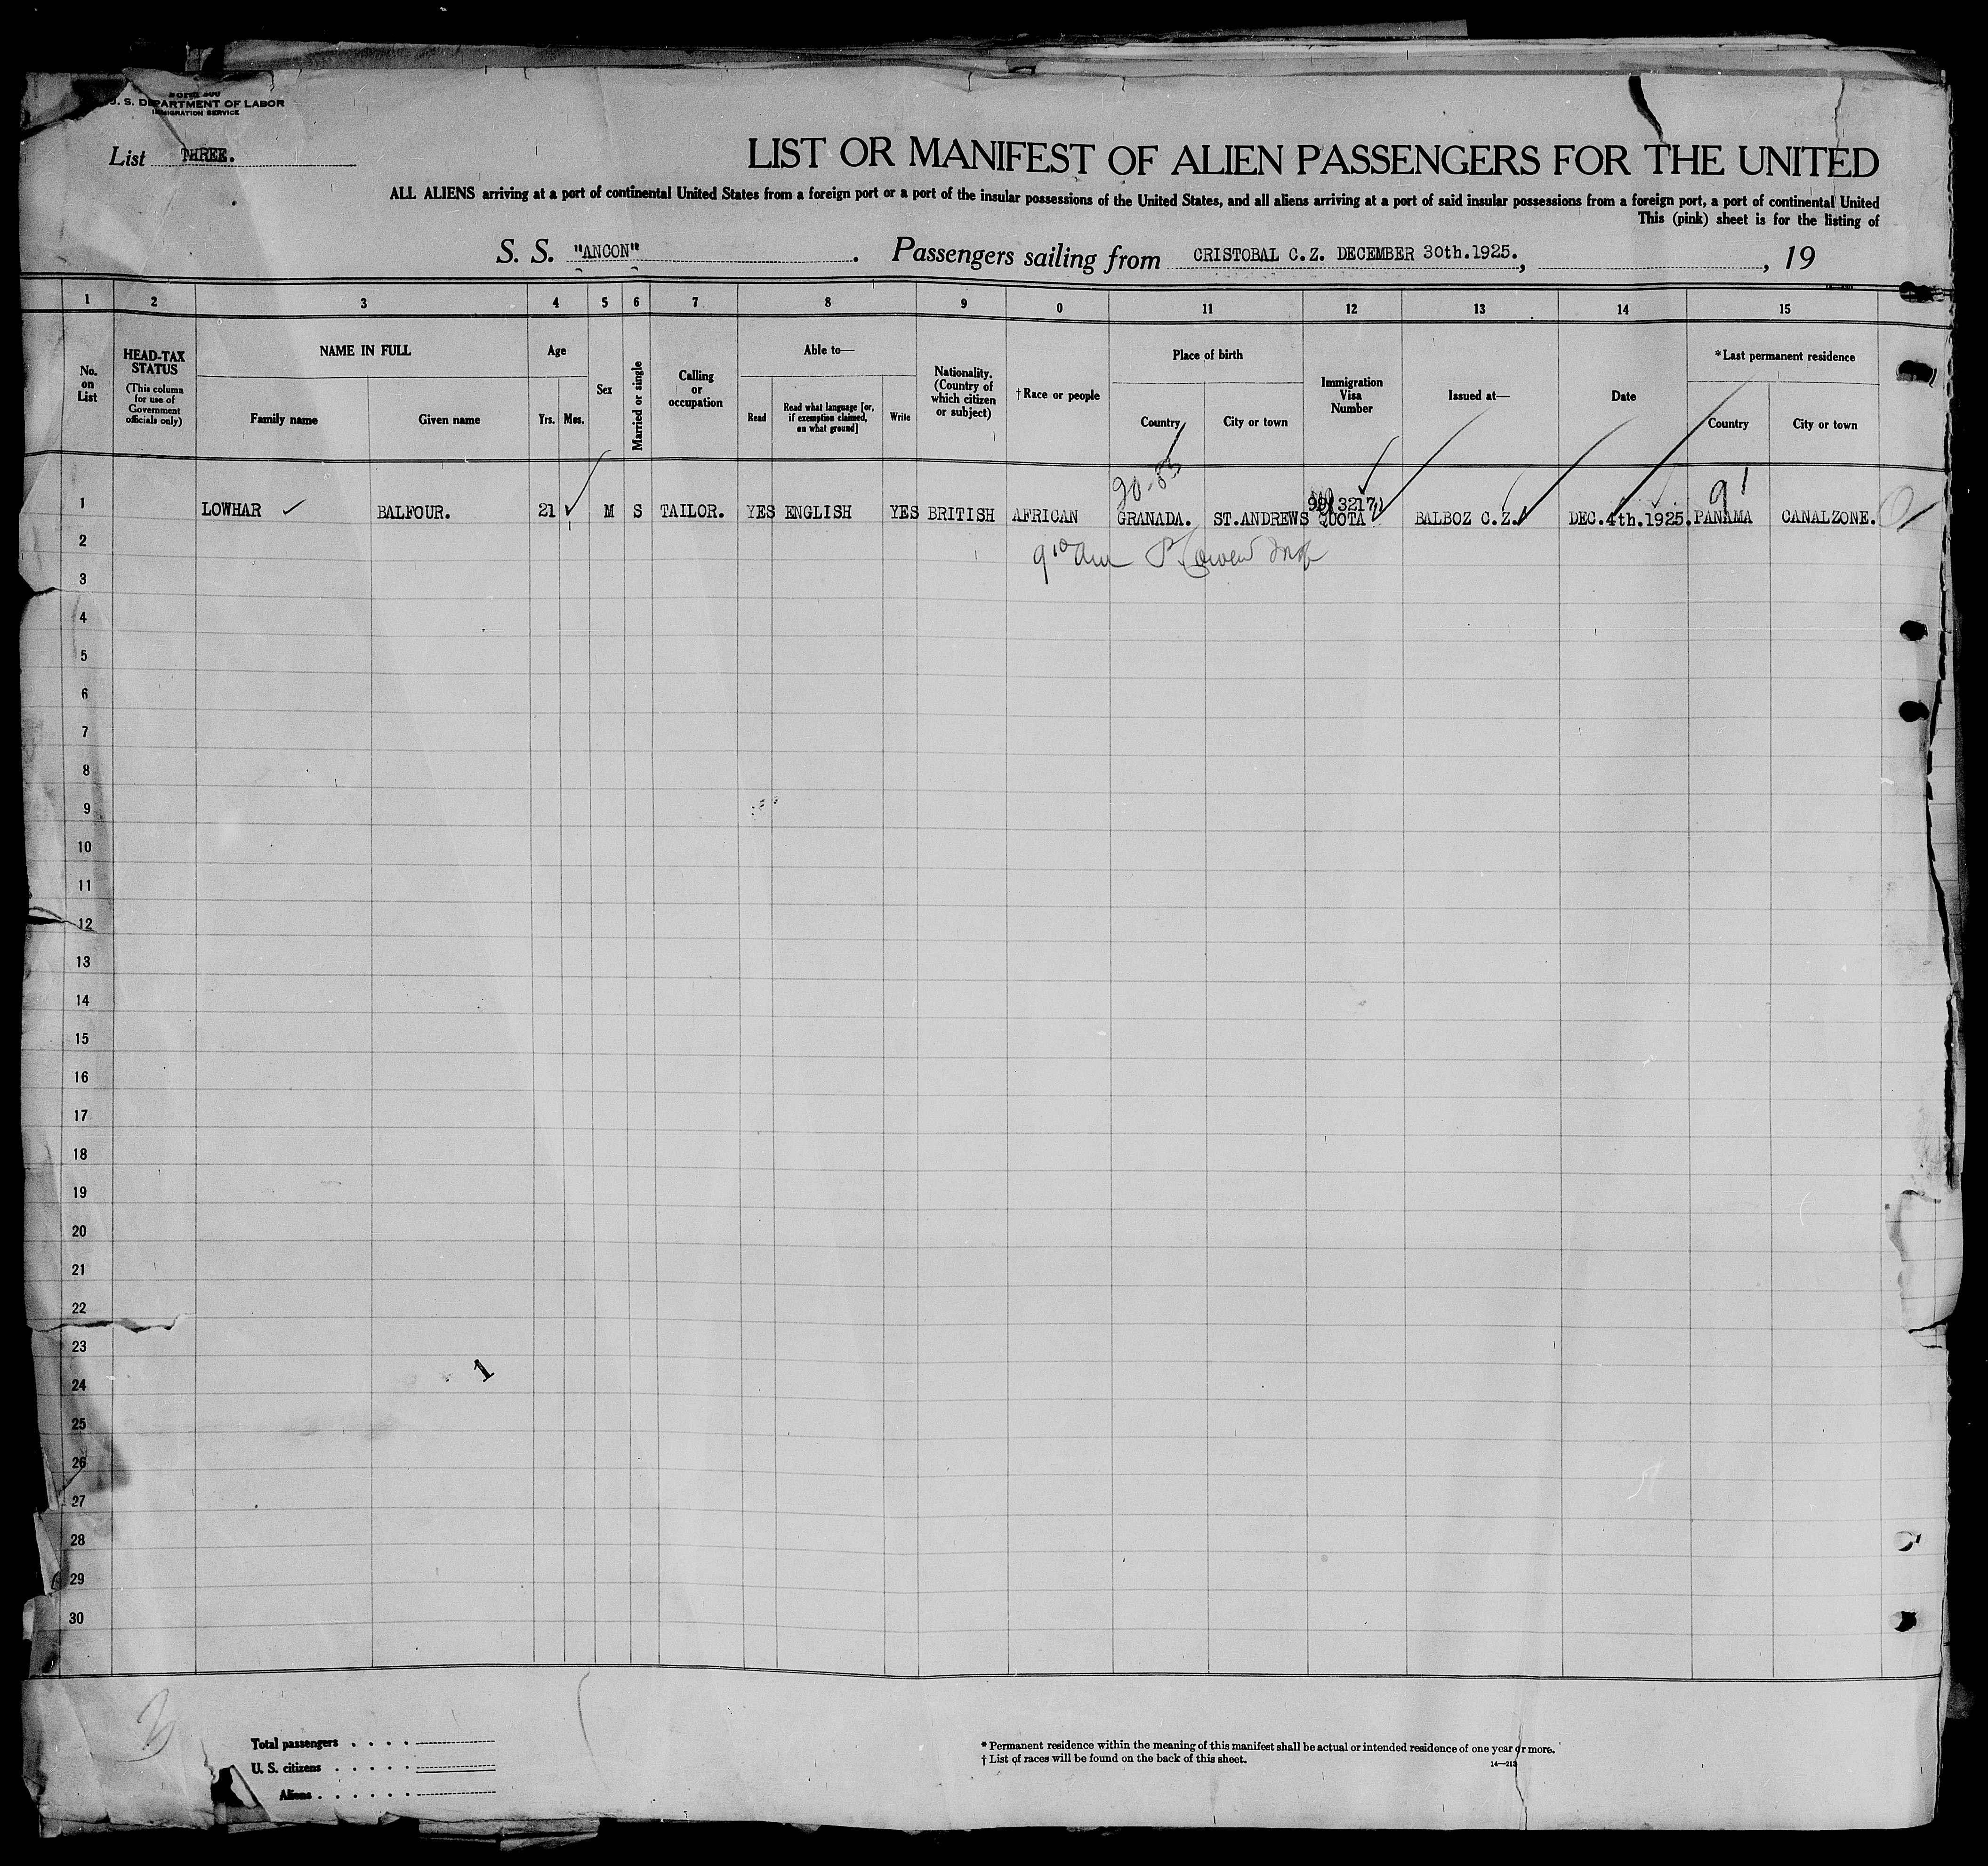 U. S. DEPARTMENT OF LABOR
IMMIGRATION SERVICE
List THREE.
LIST OR MANIFEST OF ALIEN PASSENGERS FOR THE UNITED
ALL ALIENS arriving at a port of continental United States from a foreign port or a port of the insular possessions of the United States, and all aliens arriving at a port of said insular possessions from a foreign port, a port of continental United
This (pink) sheet is for the listing of
S. S. "ANCON" . Passengers sailing from CRISTOBAL C.Z. DECEMBER 30th.1925. , , 19
1 2 3 4 5 6 7 8 9 0 11 12 13 14 15
No. on List
HEAD-TAX STATUS
(This column for use of Government officials only)
NAME IN FULL
Family name Given name
Age
Yrs. Mos.
Sex
Married or single
Calling or occupation
Able to—
Read
Read what language [or, if exemption claimed, on what ground]
Write
Nationality. (Country of which citizen or subject)
† Race or people
Place of birth
Country City or town
Immigration Visa Number
Issued at—
Date
* Last permanent residence
Country City or town
1 LOWHAR BALFOUR. 21 M S TAILOR. YES ENGLISH YES BRITISH AFRICAN GRANADA. ST.ANDREWS QUOTA BALBOZ C.Z. DEC.4th.1925. PANAMA CANALZONE.
2
3
4
5
6
7
8
9
10
11
12
13
14
15
16
17
18
19
20
21
22
23
1
24
25
26
27
28
29
30
Total passengers . . . .
U. S. citizens . . . . .
Aliens . . . . . .
* Permanent residence within the meaning of this manifest shall be actual or intended residence of one year or more.
† List of races will be found on the back of this sheet.